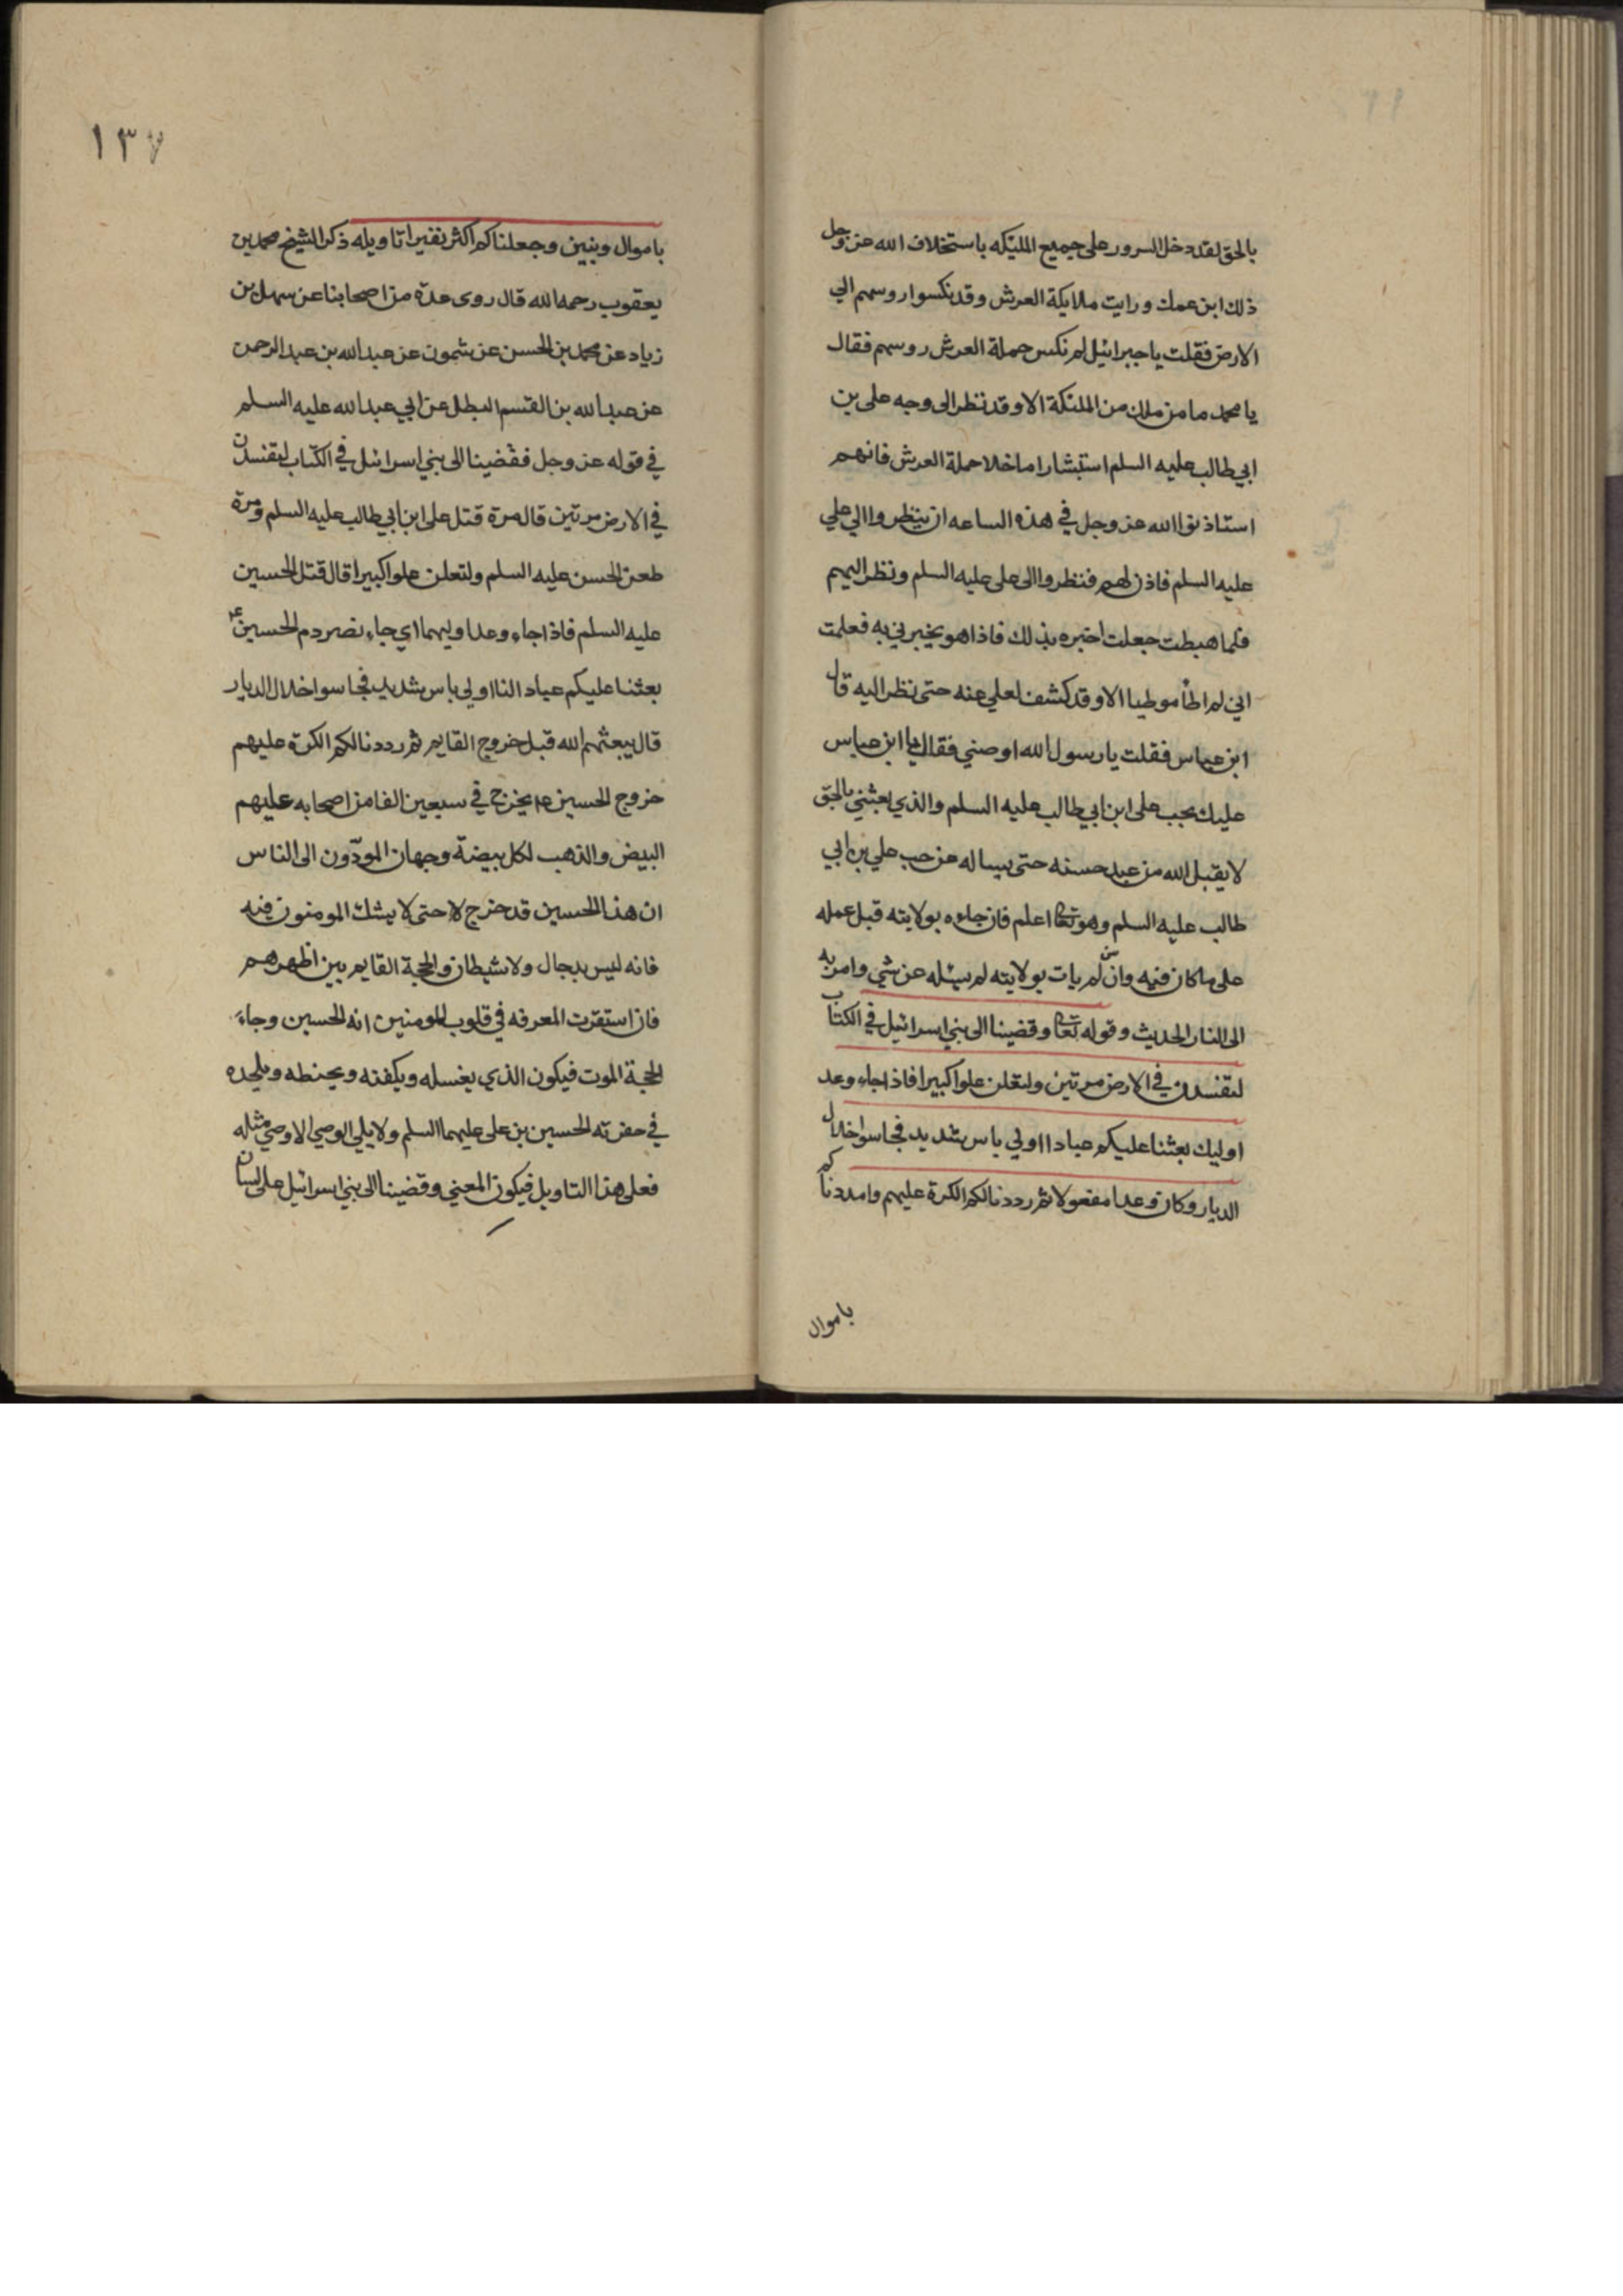 بالحق لقد دخل السرور على جميع المليكه باستخلاف الله عز وجل
ذلك ابن عمك ورايت ملايكة العرش وقد نكسوا روسهم الي
الارض فقلت يا جبرائيل لم نكس حملة العرش روسهم فقال
يا محمد ما من ملك من الملئكة الا وقد نظر الى وجه على بن
ابي طالب عليه السلم استبشارا ما خلا حملة العرش فانهم
استاذنوا الله عز وجل في هذه الساعه ان ينظروا الي علي
عليه السلم فاذن لهم فنظروا الى على عليه السلم ونظر اليهم
فلما هبطت جعلت اخبره بذلك فاذا هو يخبرني به فعلمت
اني لم اطأ موطيا الا وقد كشف لعلي عنه حتى نظر اليه قال
ابن عباس فقلت يا رسول الله اوصني فقال يا ابن عباس
عليك بحب على ابن ابي طالب عليه السلم والذي بعثني بالحق
لا يقبل الله من عبد حسنه حتى يساله عن حب علي بن ابي
طالب عليه السلم وهو تعا اعلم فان جاءه بولايته قبل عمله
على ما كان فيه وان لم يات بولايته لم يسئله عن شي وامر به
الى النار الحديث وقوله تعا وقضينا الى بني اسرائيل في الكتاب
لتفسدن في الارض مرتين ولتعلن علوا كبيرا فاذا جاء وعد
اوليك بعثنا عليكم عبادا اولي باس شديد فجاسوا خلال
الديار وكان وعدا مفعولا ثم رددنا لكم الكرة عليهم وامددناكم
باموال
١٣٧
باموال وبنين وجعلناكم اكثر نفيرا تاويله ذكر الشيخ محمد بن
يعقوب رحمه الله قال روى عدة من اصحابنا عن سهل بن
زياد عن محمد بن الحسن عن شمون عن عبد الله بن عبد الرحمن
عن عبد الله بن القسم البطل عن ابي عبد الله عليه السلم
في قوله عز وجل فقضينا الى بني اسرائيل في الكتاب لتفسدن
في الارض مرتين قال مرة قتل على ابن ابي طالب عليه السلم ومرة
طعن الحسن عليه السلم ولتعلن علوا كبيرا قال قتل الحسين
عليه السلم فاذا جاء وعد اوليهما اي جاء نصر دم الحسين ع
بعثنا عليكم عباد النا اولي باس شديد فجاسوا خلال الديار
قال يبعثهم الله قبل خروج القايم ثم رددنا لكم الكرة عليهم
خروج الحسين ع يخرج في سبعين الفا من اصحابه عليهم
البيض والذهب لكل بيضة وجهان المودّون الى الناس
ان هذا الحسين قد خرج لا حتى لا يشك المومنون فيه
فانه ليس بدجال ولا شيطان والحجة القايم بين اظهرهم
فان استقرت المعرفه في قلوب المومنين انه الحسين وجاء
الحجة الموت فيكون الذي يغسله ويكفنه ويحنطه ويلحده
في حفرته الحسين بن على عليهما السلم ولا يلي الوصي الا وصي مثله
فعلى هذا التاويل فيكون المعني وقضينا الى بني اسرائيل على لسان